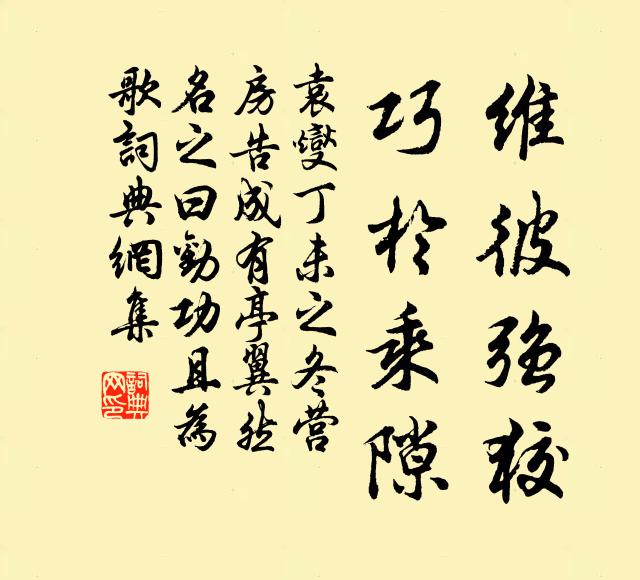 维彼强狡
巧於乘隙
袁燮丁未之冬营
房告成有亭翼然
名之曰勸功且為
歌詞典網集
詞典
网印